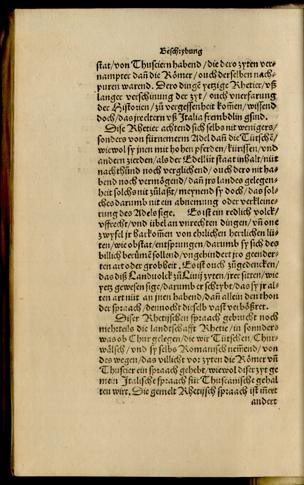 Beschrybung
stat/von Thusciern habend/die dero zyten ver-
nampter dañ die Römer/ouch derselben nach-
puren warend. Dero dingē yetzige Rhetier/vß
langer verschinung der zyt/ouch vnerfarung
der Historien/zů vergessenheit kom̃en/wissend
doch/das jre eltern vß Italia frembdlin gsind.
Dise Rhetier achtend sich selbs nit wenigers/
sonders von fürnemerm Adel dañ die Tütschē/
wiewol sy jnen mit hohen pferden/kürissen/vnd
andern zierden/als der Edllüt staat inhalt/nüt
nachthůnd noch verglychend/ouch dero nit ha-
bend noch vermögend/dañ jrs landes gelegen-
heit solchs nit zůlaßt/meynend sy doch/das sol-
ches darumb nit ein abnemung oder verkleine-
rung des Adels sige. Es ist ein redlich volck/
vffrecht/vnd übel an vnrechten dingen/vñ one
zwyfel jr harkom̃en von ehrlichen herrlichen lü-
ten/wie obstat/entsprungen/darumb sy sich des
billich berůmē sollend/vngehindert jro geender-
ten art oder grobheit. Es ist ouch zůgedencken/
das diß Landuolck zů Liuij zyten/jrer sitten/wie
yetz gewesen sige/darumb er schrybt/das sy jr al-
ten art nüt an jnen habend/dañ allein den thon
der spraach/dennocht dieselb vast verbößret.
Diser Rhetischen spraach gebrucht noch
mehrteils die landtschafft Rhetie/in sonnders
was ob Chur gelegen/die wir Tütschen/Chur-
wälsch/vnd sy selbs Romanisch nem̃end/von
des wegen/das villicht vor zyten die Römer vñ
Thuscier ein spraach gehebt/wiewol diser zyt ge
mein Italische spraach für Thuscanische gehal
ten wirt. Die gemelt Rhetisch spraach ist m̃ert
andert